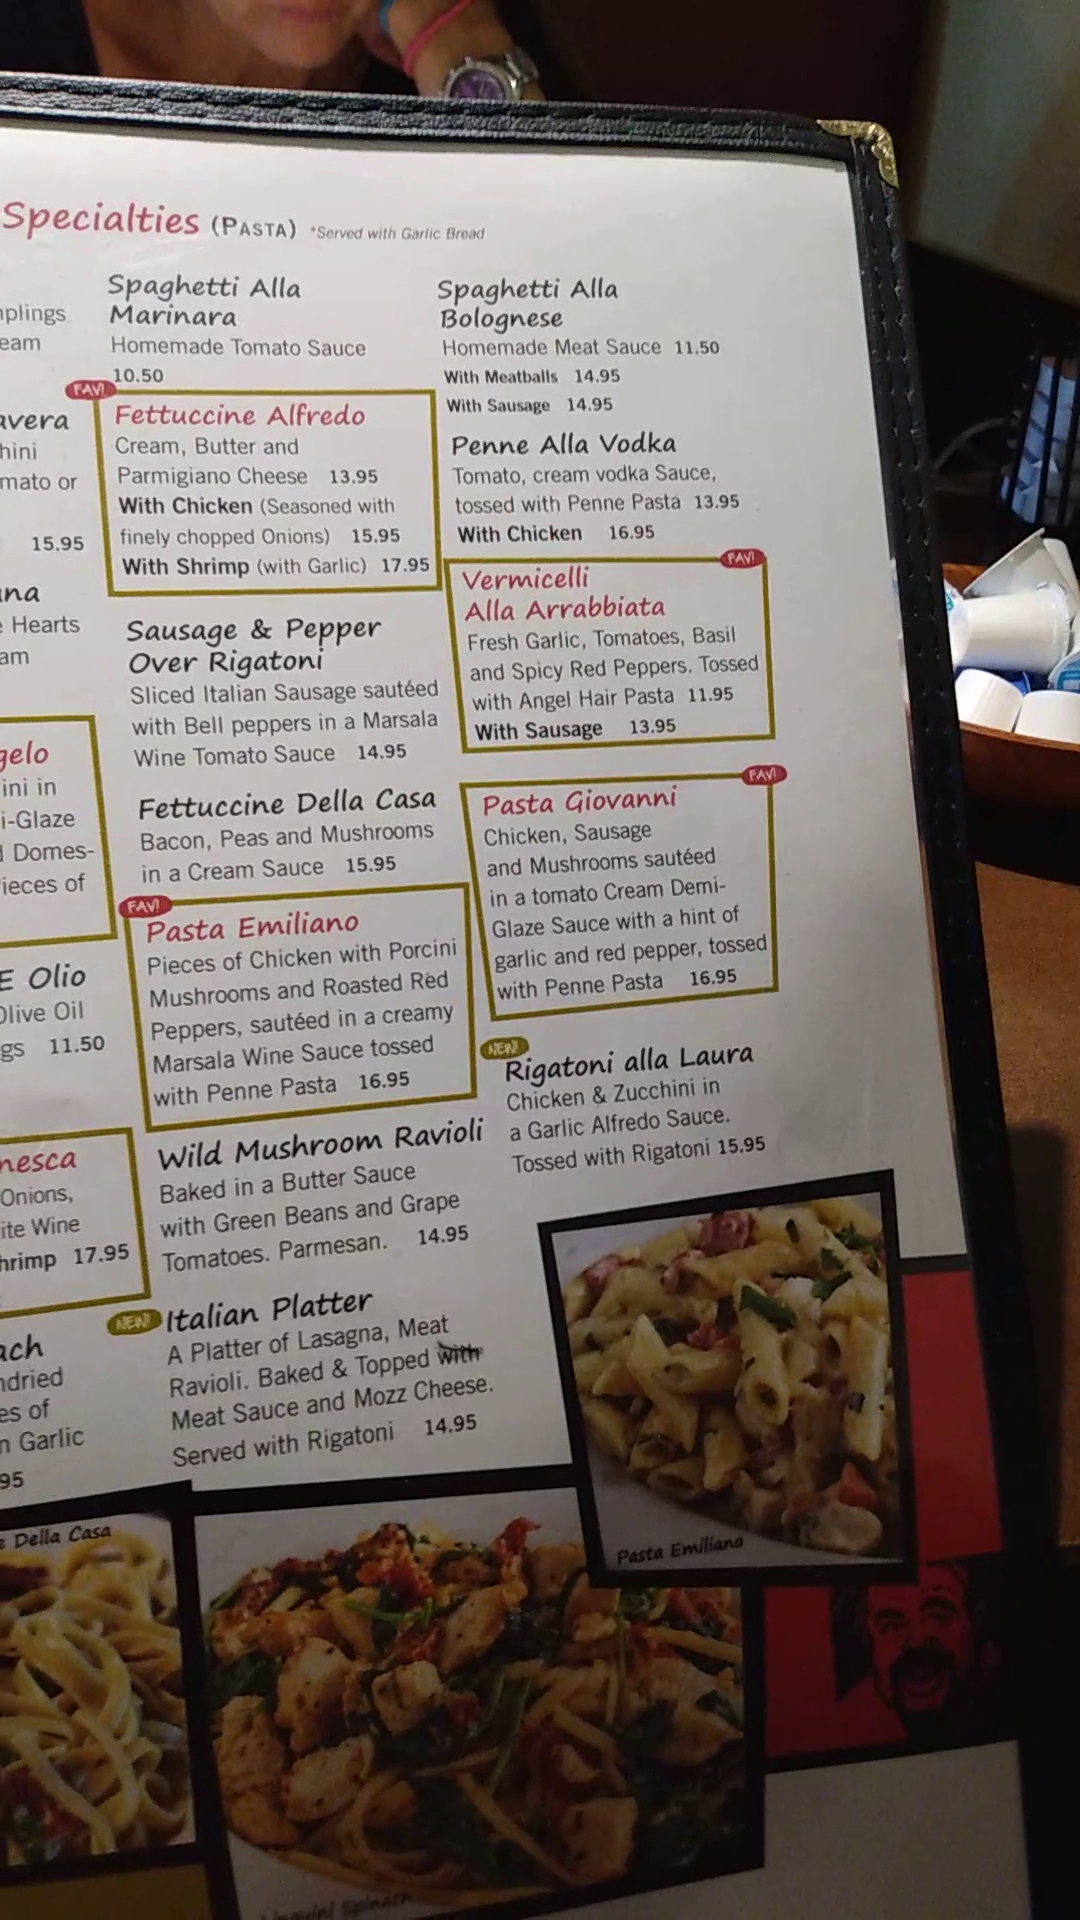 Specialties (PASTA) *Served with Garlic Bread
eam
avera
hini
mato or
15.95
una
Hearts
am
gelo
ini in
i-Glaze
Domes-
ieces of
E Olio
Olive Oil
gs 11.50
nesca
Onions,
ite Wine
hrimp 17.95
ach
ndried
es of
n Garlic
95
Spaghetti Alla
Marinara
Homemade Tomato Sauce
10.50
FAV!
Fettuccine Alfredo
Cream, Butter and
Parmigiano Cheese 13.95
With Chicken (Seasoned with
finely chopped Onions) 15.95
With Shrimp (with Garlic) 17.95
Sausage & Pepper
Over Rigatoni
Sliced Italian Sausage sautéed
with Bell peppers in a Marsala
Wine Tomato Sauce 14.95
Fettuccine Della Casa
Bacon, Peas and Mushrooms
in a Cream Sauce 15.95
FAV!
Pasta Emiliano
Pieces of Chicken with Porcini
Mushrooms and Roasted Red
Peppers, sautéed in a creamy
Marsala Wine Sauce tossed
with Penne Pasta 16.95
Wild Mushroom Ravioli
Baked in a Butter Sauce
with Green Beans and Grape
Tomatoes. Parmesan. 14.95
NEW!
Italian Platter
A Platter of Lasagna, Meat
Ravioli. Baked & Topped with
Meat Sauce and Mozz Cheese.
Served with Rigatoni 14.95
Spaghetti Alla
Bolognese
Homemade Meat Sauce 11.50
With Meatballs 14.95
With Sausage 14.95
Penne Alla Vodka
Tomato, cream vodka Sauce,
tossed with Penne Pasta 13.95
With Chicken 16.95
FAV!
Vermicelli
Alla Arrabbiata
Fresh Garlic, Tomatoes, Basil
and Spicy Red Peppers. Tossed
with Angel Hair Pasta 11.95
With Sausage 13.95
FAV!
Pasta Giovanni
Chicken, Sausage
and Mushrooms sautéed
in a tomato Cream Demi-
Glaze Sauce with a hint of
garlic and red pepper, tossed
with Penne Pasta 16.95
NEW!
Rigatoni alla Laura
Chicken & Zucchini in
a Garlic Alfredo Sauce.
Tossed with Rigatoni 15.95
Della Casa
Pasta Emiliano
Linguini Spinach